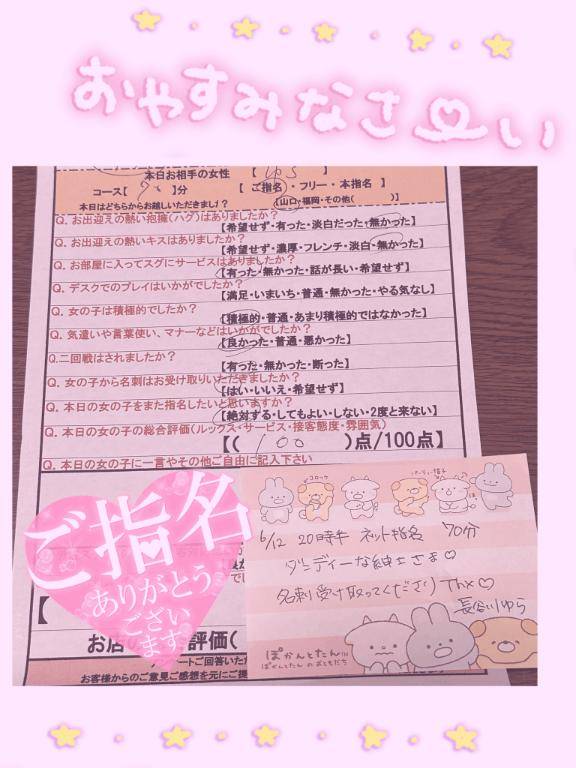 おやすみなさい
本日お相手の女性 【 ゆら 】
コース【 70 】分 【 ご指名・フリー・本指名 】
本日はどちらからお越しいただきました? 【山口・福岡・その他( )】
Q. お出迎えの熱い抱擁(ハグ)はありましたか?
【希望せず・有った・淡白だった・無かった】
Q. お出迎えの熱いキスはありましたか?
【希望せず・濃厚・フレンチ・淡白・無かった】
Q. お部屋に入ってスグにサービスはありましたか?
【有った・無かった・話が長い・希望せず】
Q. デスクでのプレイはいかがでしたか?
【満足・いまいち・普通・無かった・やる気なし】
Q. 女の子は積極的でしたか?
【積極的・普通・あまり積極的ではなかった】
Q. 気遣いや言葉使い、マナーなどはいかがでしたか?
【良かった・普通・悪かった】
Q.二回戦はされましたか?
【有った・無かった・断った】
Q. 女の子から名刺はお受け取りいただきましたか?
【はい・いいえ・希望せず】
Q. 本日の女の子をまた指名したいと思いますか?
【絶対する・してもよい・しない・2度と来ない】
Q. 本日の女の子の総合評価(ルックス・サービス・接客態度・雰囲気)
【( 100 )点/100点】
Q. 本日の女の子に一言やその他ご自由に記入下さい
ご指名
ありがとう
ござい
ます
6/12 20時半 ネット指名 70分
ダンディーな紳士さま♡
名刺受け取ってくださりThx♡
長谷川ゆら
ぽかんとたん
ぽかんとたんのおともだち
評価(
ートご回答いただ
お客様からのご意見ご感想を元にご提